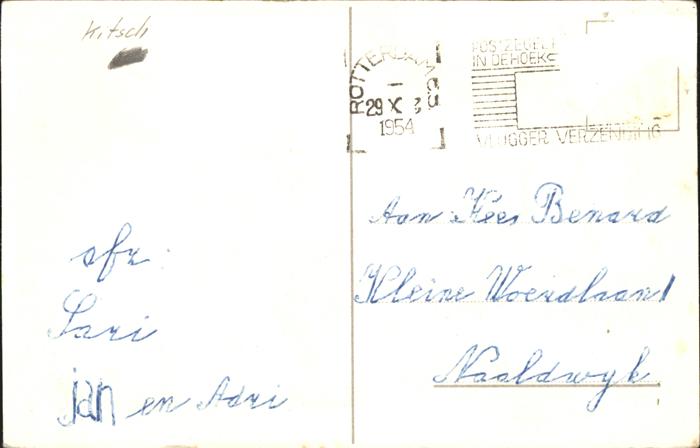 Kitsch
ROTTERDAM C.S.
29 X
1954
POSTZEGEL
IN DE HOEK
VLUGGER VERZENDING
Aan Kees Benard
Kleine Woerdlaan 1
Naaldwyk
afz:
Sari
jan en Adri